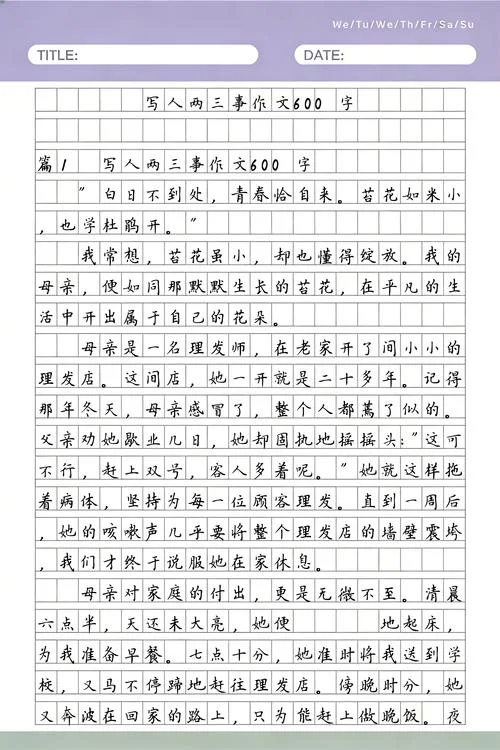 We/Tu/We/Th/Fr/Sa/Su
TITLE:
DATE:
写人两三事作文600 字
篇1 写人两三事作文600 字
"白日不到处，青春恰自来。苔花如米小
，也学杜鹃开。"
我常想，苔花虽小，却也懂得绽放。我的
母亲，便如同那默默生长的苔花，在平凡的生
活中开出属于自己的花朵。
母亲是一名理发师，在老家开了间小小的
理发店。这间店，她一开就是二十多年。记得
那年冬天，母亲感冒了，整个人都蔫了似的。
父亲劝她歇业几日，她却固执地摇摇头："这可
不行，赶上双号，客人多着呢。"她就这样拖
着病体，坚持为每一位顾客理发。直到一周后
，她的咳嗽声几乎要将整个理发店的墙壁震垮
，我们才终于说服她在家休息。
母亲对家庭的付出，更是无微不至。清晨
六点半，天还未大亮，她便 地起床，
为我准备早餐。七点十分，她准时将我送到学
校，又马不停蹄地赶往理发店。傍晚时分，她
又奔波在回家的路上，只为能赶上做晚饭。夜